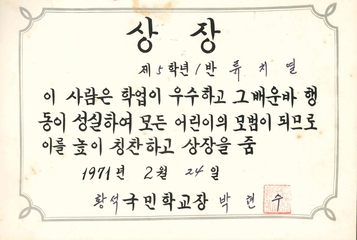 상장
제 5 학년 1 반 류 치 열
이 사람은 학업이 우수하고 그 배운바 행
동이 성실하여 모든 어린이의 모범이 되므로
이를 높이 칭찬하고 상장을 줌
1971 년 2 월 24 일
황석 국민학교장 박 현 수